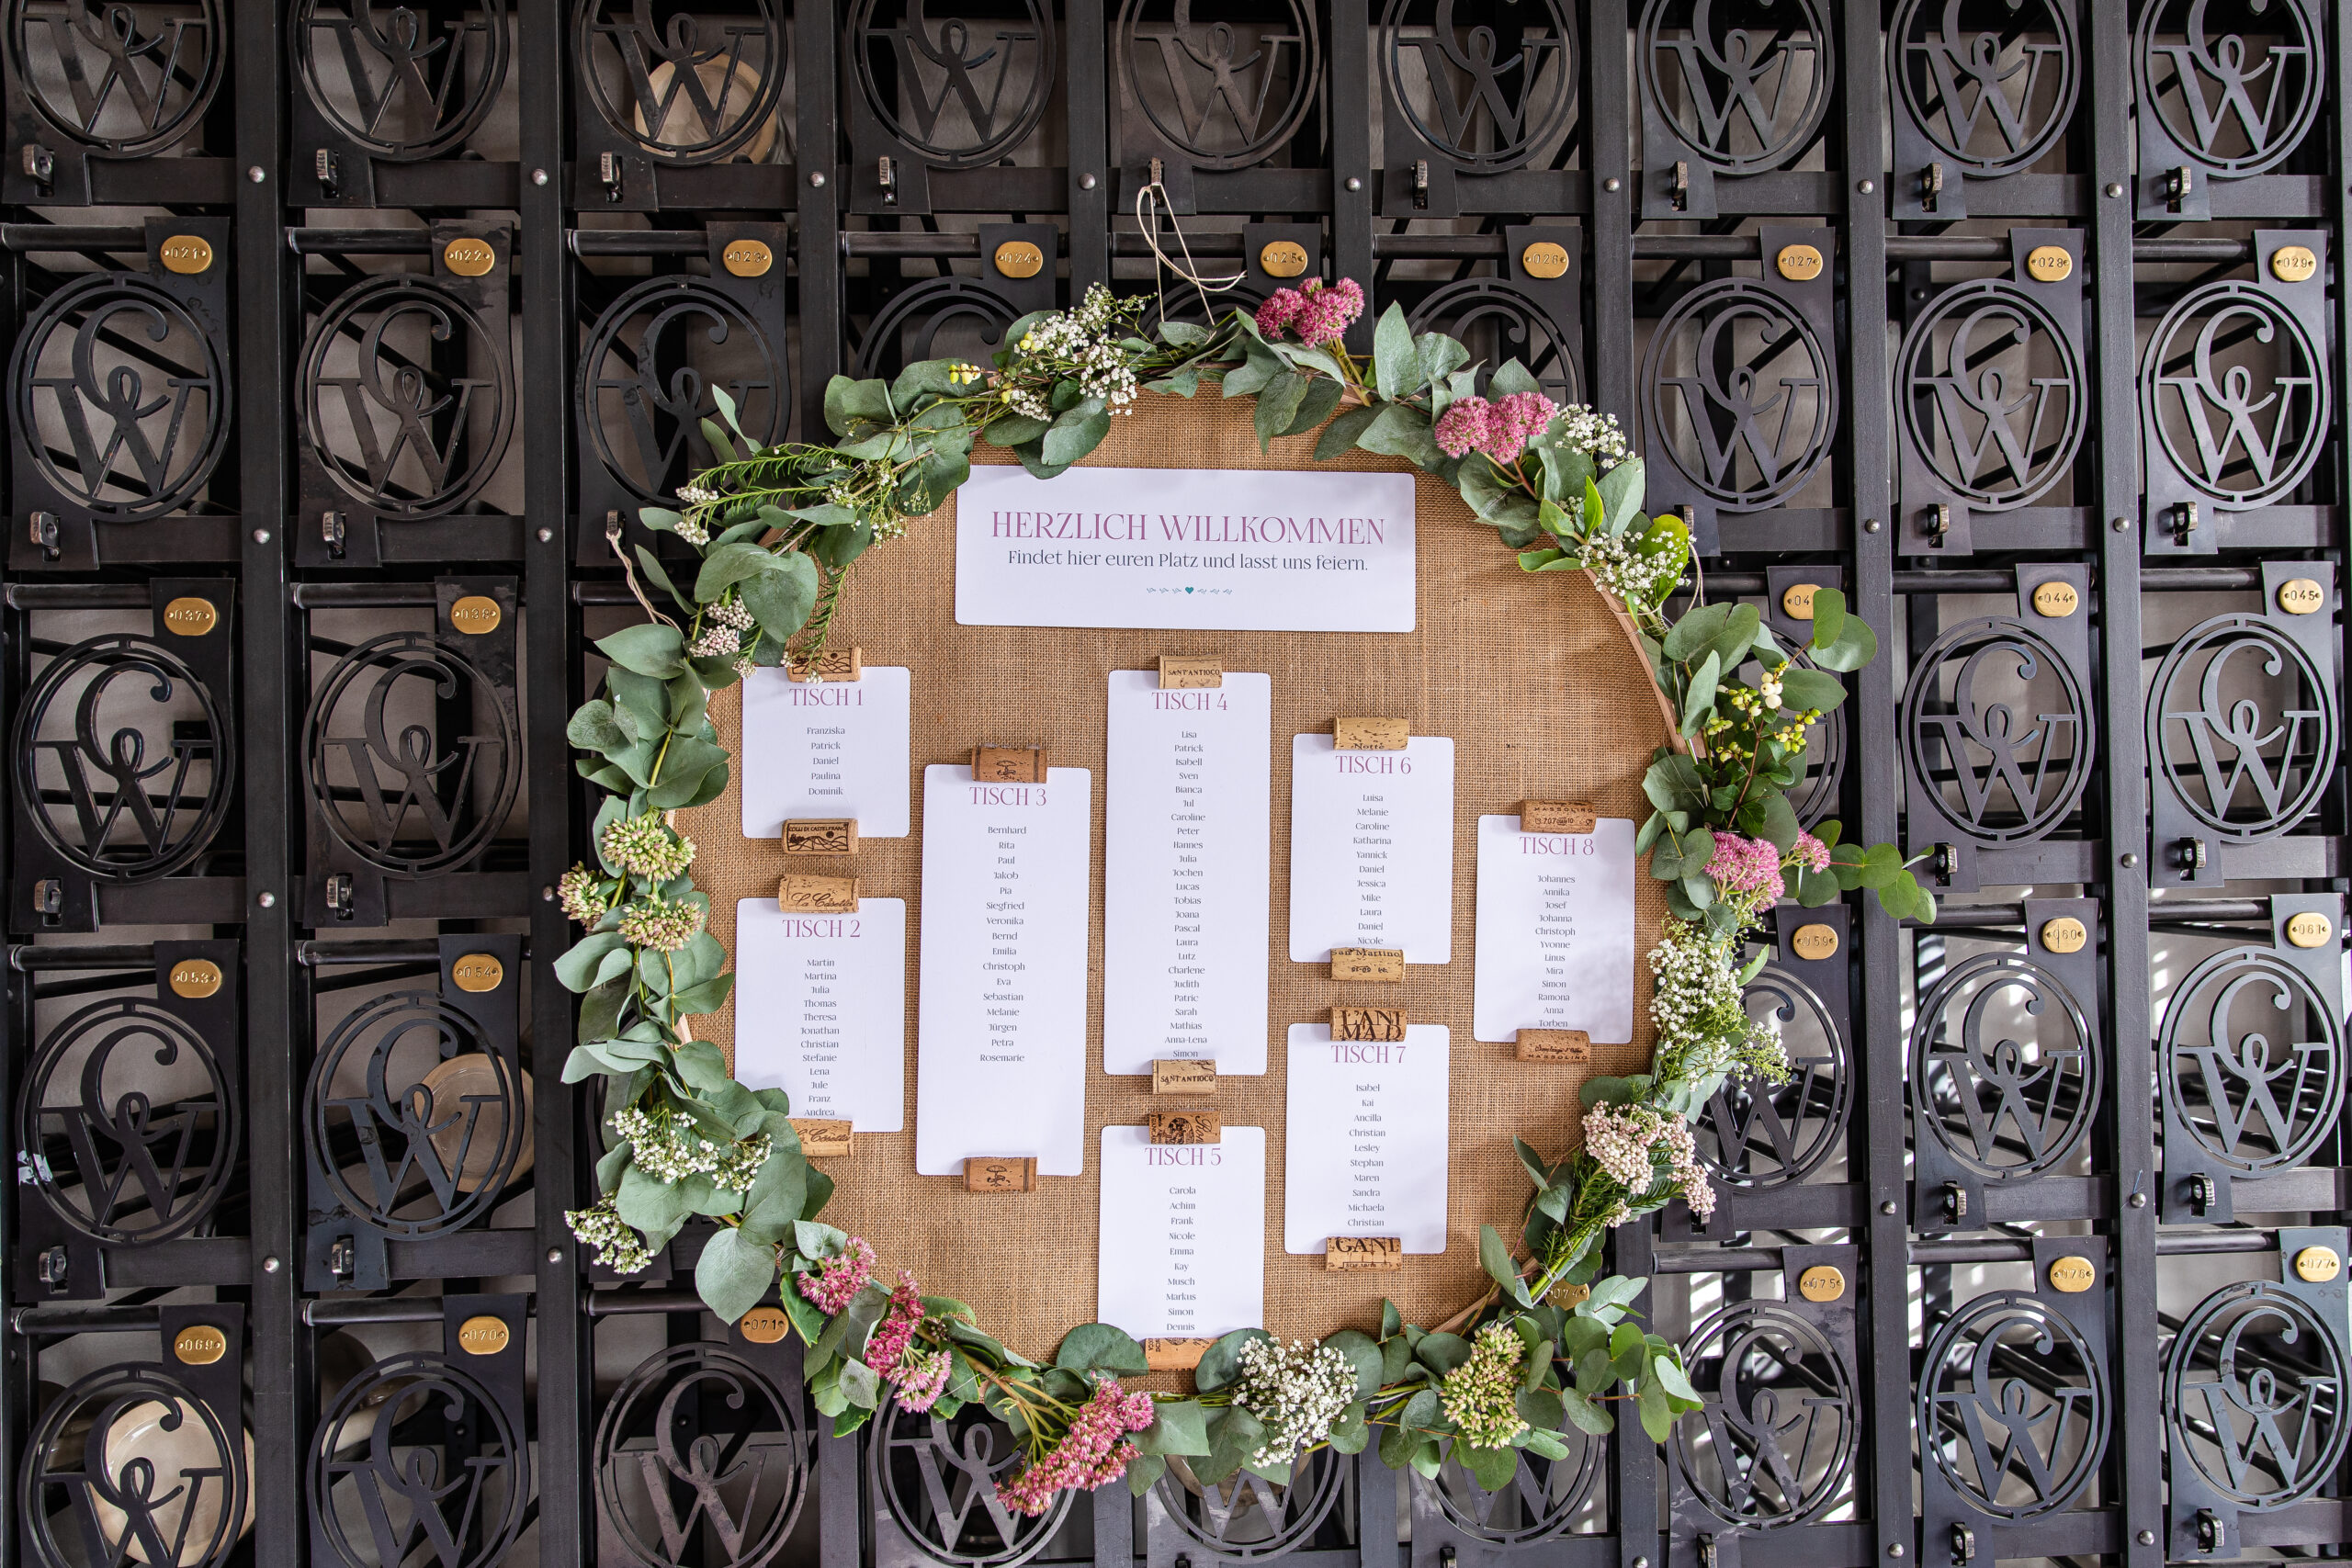 021
022
023
024
025
026
027
028
029
HERZLICH WILLKOMMEN
Findet hier euren Platz und lasst uns feiern.
037
038
044
045
TISCH 1
Franziska
Patrick
Daniel
Paulina
Dominik
COLLI DI CASTELFRANCO
La Casetta
TISCH 2
Martin
Martina
Julia
Thomas
Theresa
Jonathan
Christian
Stefanie
Lena
Jule
Franz
Andrea
La Casetta
TISCH 3
Bernhard
Rita
Paul
Jakob
Pia
Siegfried
Veronika
Bernd
Emilia
Christoph
Eva
Sebastian
Melanie
Jürgen
Petra
Rosemarie
SANT'ANTIOCO
TISCH 4
Lisa
Patrick
Isabell
Sven
Bianca
Jul
Caroline
Peter
Hannes
Julia
Jochen
Lucas
Tobias
Joana
Pascal
Laura
Lutz
Charlene
Judith
Patric
Sarah
Mathias
Anna-Lena
Simon
SANT'ANTIOCO
TISCH 5
Carola
Achim
Frank
Nicole
Emma
Kay
Musch
Markus
Simon
Dennis
Notte
TISCH 6
Luisa
Melanie
Caroline
Katharina
Yannick
Daniel
Jessica
Mike
Laura
Daniel
Nicole
San Martino
L'ANI
MA D
TISCH 7
Isabel
Kai
Ancilla
Christian
Lesley
Stephan
Maren
Sandra
Michaela
Christian
GANI
MASSOLINO
TISCH 8
Johannes
Annika
Josef
Johanna
Christoph
Yvonne
Linus
Mira
Simon
Ramona
Anna
Torben
MASSOLINO
053
054
059
060
061
069
070
071
074
075
076
077